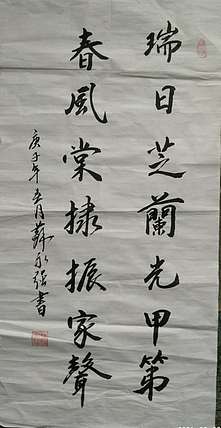 瑞日芝蘭光甲第
春風棠棣振家聲
庚子年五月薛永強書